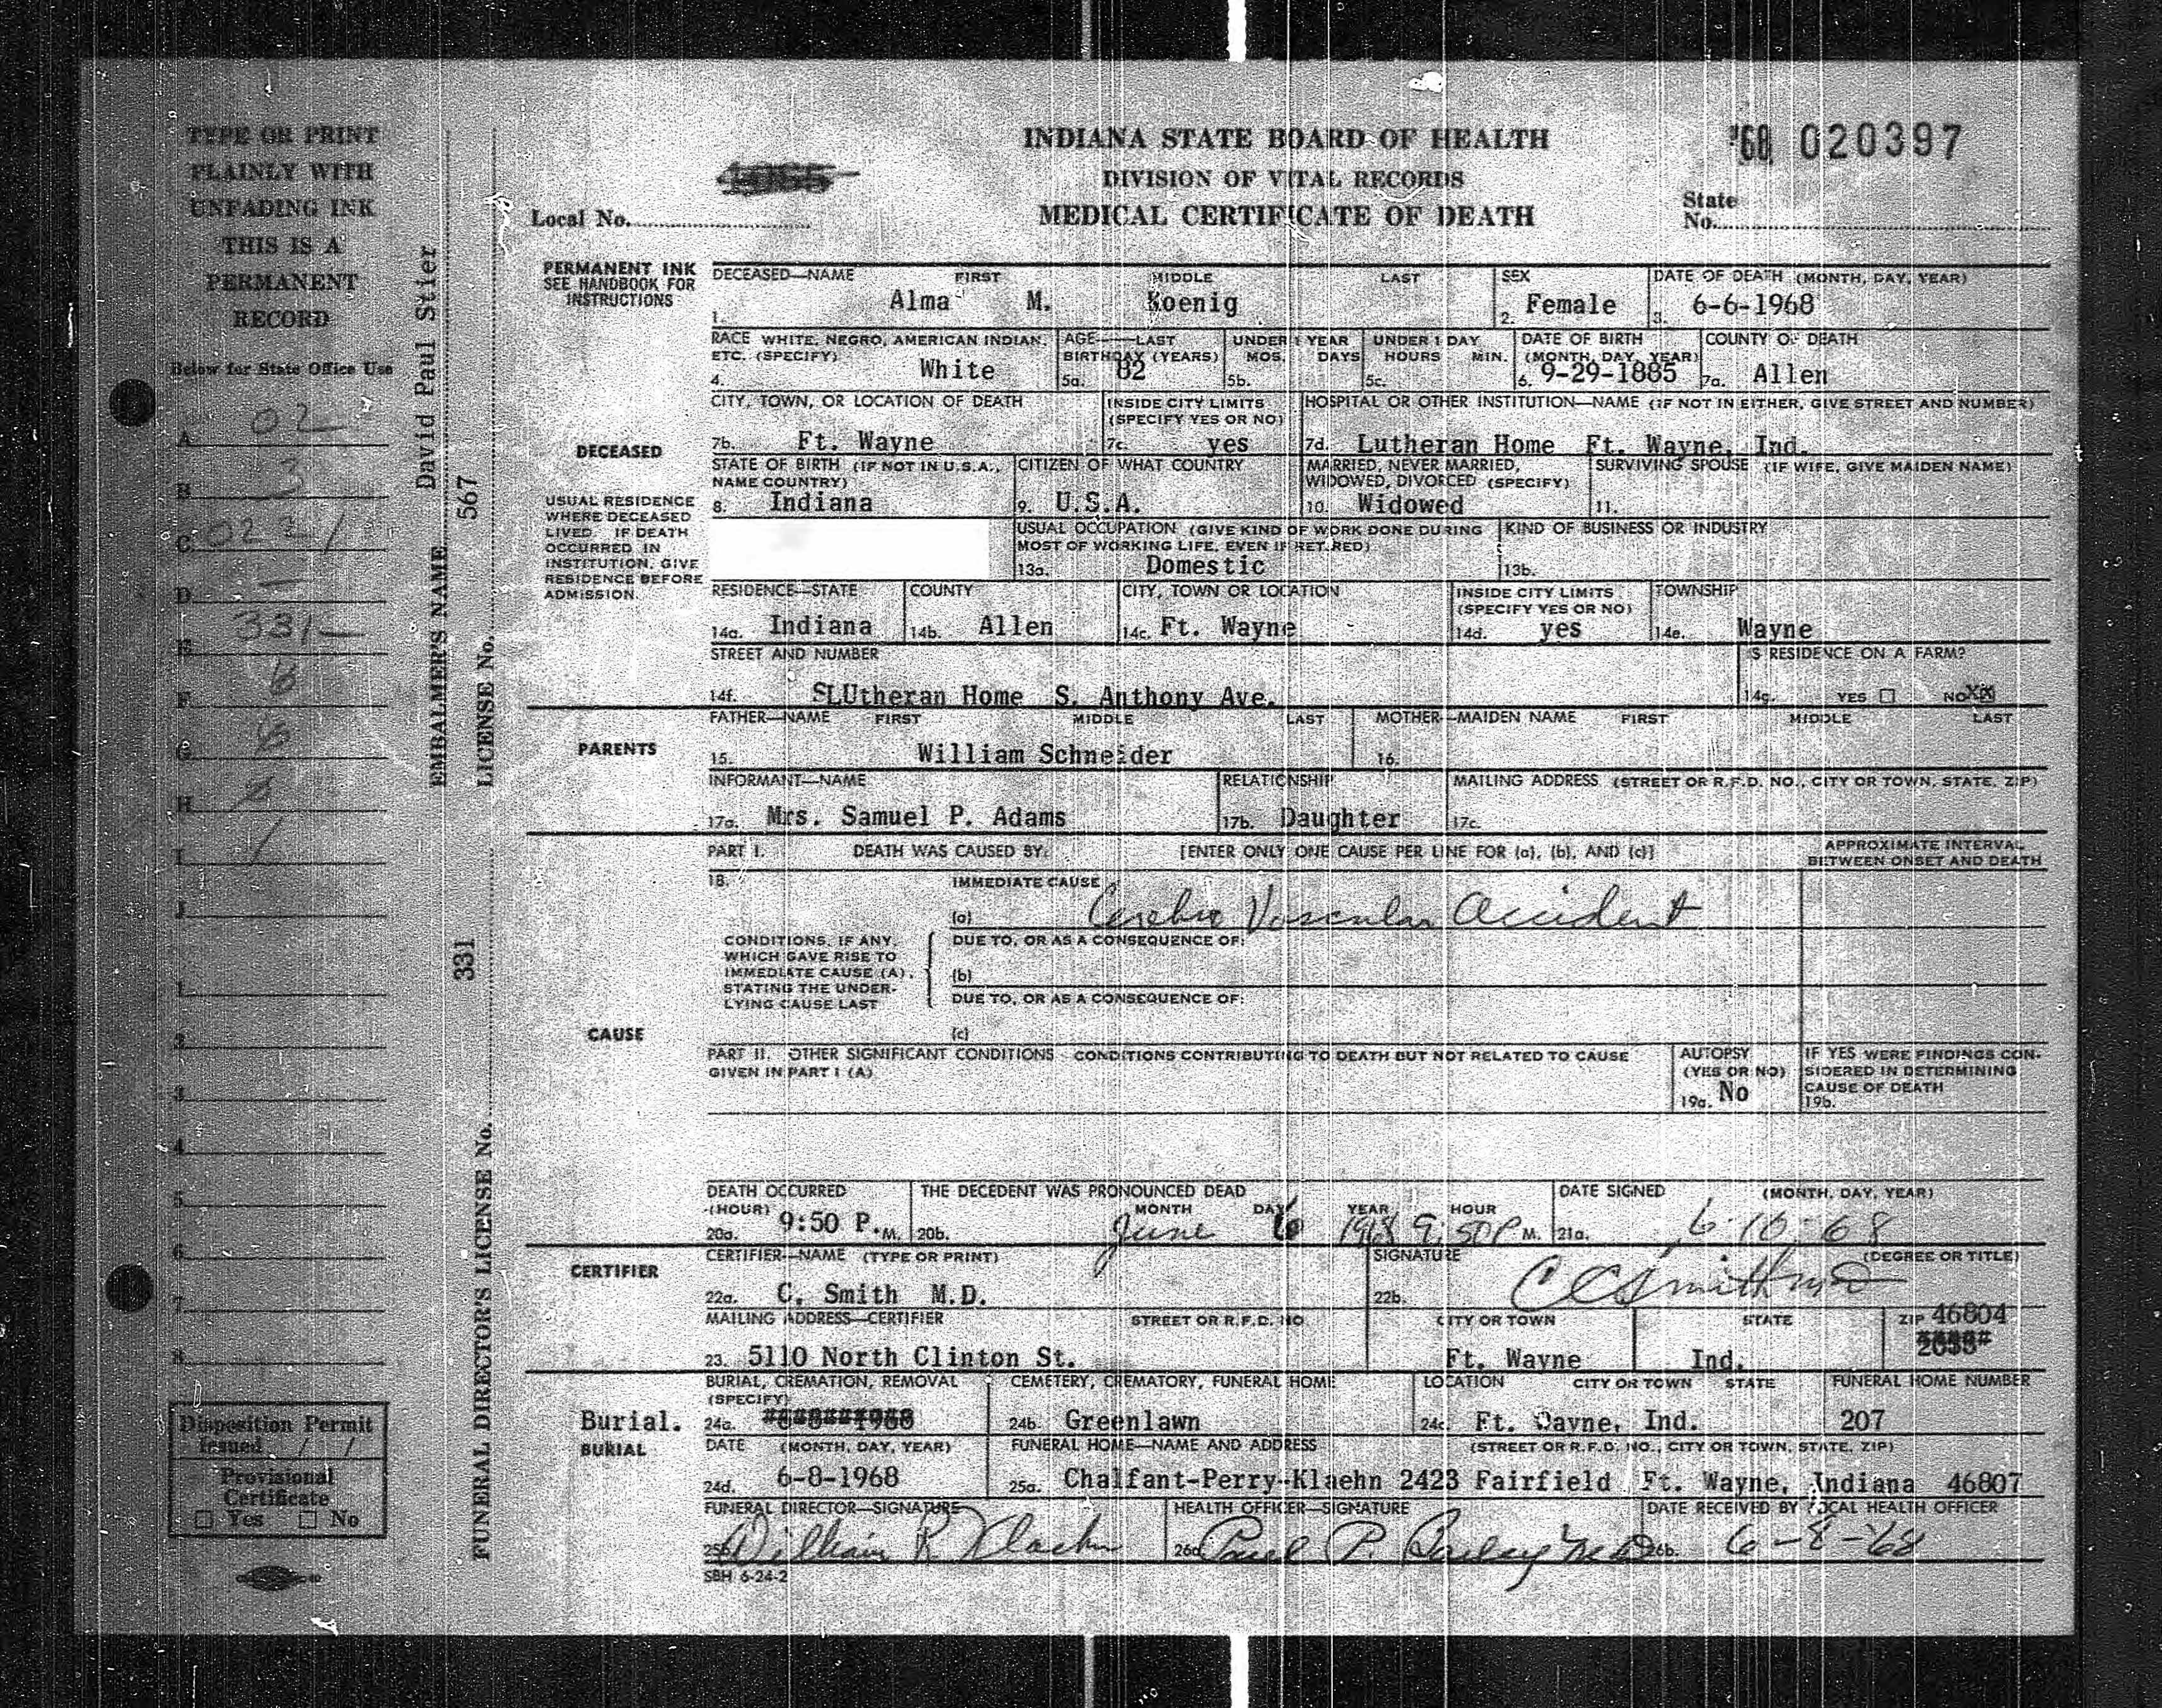 TYPE OR PRINT
PLAINLY WITH
UNFADING INK
THIS IS A
PERMANENT
RECORD
Below for State Office Use
A. 02
B. 3
C. 0221
D. —
E. 331—
F. 6
G.
H.
I. /
J.
1.
2.
3.
4.
5.
6.
7.
8.
Disposition Permit
Issued / /
Provisional
Certificate
☐ Yes ☐ No
EMBALMER'S NAME David Paul Stier
LICENSE No. 567
FUNERAL DIRECTOR'S LICENSE No. 331
INDIANA STATE BOARD OF HEALTH
DIVISION OF VITAL RECORDS
MEDICAL CERTIFICATE OF DEATH
'68 020397
Local No.
State
No.
PERMANENT INK
SEE HANDBOOK FOR
INSTRUCTIONS
DECEASED—NAME FIRST MIDDLE LAST SEX DATE OF DEATH (MONTH, DAY, YEAR)
1. Alma M. Koenig 2. Female 3. 6-6-1968
RACE WHITE, NEGRO, AMERICAN INDIAN, AGE—LAST UNDER 1 YEAR UNDER 1 DAY DATE OF BIRTH COUNTY OF DEATH
ETC. (SPECIFY) BIRTHDAY (YEARS) MOS. DAYS HOURS MIN. (MONTH, DAY, YEAR)
4. White 5a. 82 5b. 5c. 6. 9-29-1885 7a. Allen
CITY, TOWN, OR LOCATION OF DEATH INSIDE CITY LIMITS HOSPITAL OR OTHER INSTITUTION—NAME (IF NOT IN EITHER, GIVE STREET AND NUMBER)
(SPECIFY YES OR NO)
7b. Ft. Wayne 7c. yes 7d. Lutheran Home Ft. Wayne, Ind.
DECEASED
STATE OF BIRTH (IF NOT IN U.S.A., CITIZEN OF WHAT COUNTRY MARRIED, NEVER MARRIED, SURVIVING SPOUSE (IF WIFE, GIVE MAIDEN NAME)
NAME COUNTRY) WIDOWED, DIVORCED (SPECIFY)
8. Indiana 9. U.S.A. 10. Widowed 11.
USUAL RESIDENCE
WHERE DECEASED
LIVED. IF DEATH
OCCURRED IN
INSTITUTION, GIVE
RESIDENCE BEFORE
ADMISSION.
USUAL OCCUPATION (GIVE KIND OF WORK DONE DURING KIND OF BUSINESS OR INDUSTRY
MOST OF WORKING LIFE, EVEN IF RETIRED)
13a. Domestic 13b.
RESIDENCE—STATE COUNTY CITY, TOWN OR LOCATION INSIDE CITY LIMITS TOWNSHIP
(SPECIFY YES OR NO)
14a. Indiana 14b. Allen 14c. Ft. Wayne 14d. yes 14e. Wayne
STREET AND NUMBER IS RESIDENCE ON A FARM?
14f. SLUtheran Home S. Anthony Ave. 14g. YES ☐ NO XX
PARENTS
FATHER—NAME FIRST MIDDLE LAST MOTHER—MAIDEN NAME FIRST MIDDLE LAST
15. William Schneider 16.
INFORMANT—NAME RELATIONSHIP MAILING ADDRESS (STREET OR R.F.D. NO., CITY OR TOWN, STATE, ZIP)
17a. Mrs. Samuel P. Adams 17b. Daughter 17c.
PART I. DEATH WAS CAUSED BY: [ENTER ONLY ONE CAUSE PER LINE FOR (a), (b), AND (c)] APPROXIMATE INTERVAL
BETWEEN ONSET AND DEATH
18. IMMEDIATE CAUSE
(a) Cerebro Vascular Accident
CONDITIONS, IF ANY,
WHICH GAVE RISE TO
IMMEDIATE CAUSE (A),
STATING THE UNDER-
LYING CAUSE LAST
DUE TO, OR AS A CONSEQUENCE OF:
(b)
DUE TO, OR AS A CONSEQUENCE OF:
(c)
CAUSE
PART II. OTHER SIGNIFICANT CONDITIONS CONDITIONS CONTRIBUTING TO DEATH BUT NOT RELATED TO CAUSE
GIVEN IN PART I (A)
AUTOPSY
(YES OR NO)
19a. No
IF YES WERE FINDINGS CON-
SIDERED IN DETERMINING
CAUSE OF DEATH
19b.
DEATH OCCURRED THE DECEDENT WAS PRONOUNCED DEAD DATE SIGNED (MONTH, DAY, YEAR)
(HOUR) MONTH DAY YEAR HOUR
20a. 9:50 P.M. 20b. June 6 1968 9:50 P M. 21a. 6-10-68
CERTIFIER
CERTIFIER—NAME (TYPE OR PRINT) SIGNATURE (DEGREE OR TITLE)
22a. C. Smith M.D. 22b. C C Smith MD
MAILING ADDRESS—CERTIFIER STREET OR R.F.D. NO CITY OR TOWN STATE ZIP 46804
23. 5110 North Clinton St. Ft. Wayne Ind.
BURIAL, CREMATION, REMOVAL CEMETERY, CREMATORY, FUNERAL HOME LOCATION CITY OR TOWN STATE FUNERAL HOME NUMBER
(SPECIFY)
Burial. 24a. 24b. Greenlawn 24c. Ft. Wayne, Ind. 207
BURIAL
DATE (MONTH, DAY, YEAR) FUNERAL HOME—NAME AND ADDRESS (STREET OR R.F.D. NO., CITY OR TOWN, STATE, ZIP)
24d. 6-8-1968 25a. Chalfant-Perry-Klaehn 2423 Fairfield Ft. Wayne, Indiana 46807
FUNERAL DIRECTOR—SIGNATURE HEALTH OFFICER—SIGNATURE DATE RECEIVED BY LOCAL HEALTH OFFICER
25b. William R Klaehn 26a. Paul P. Bailey MD 26b. 6-8-'68
SBH 6-24-2